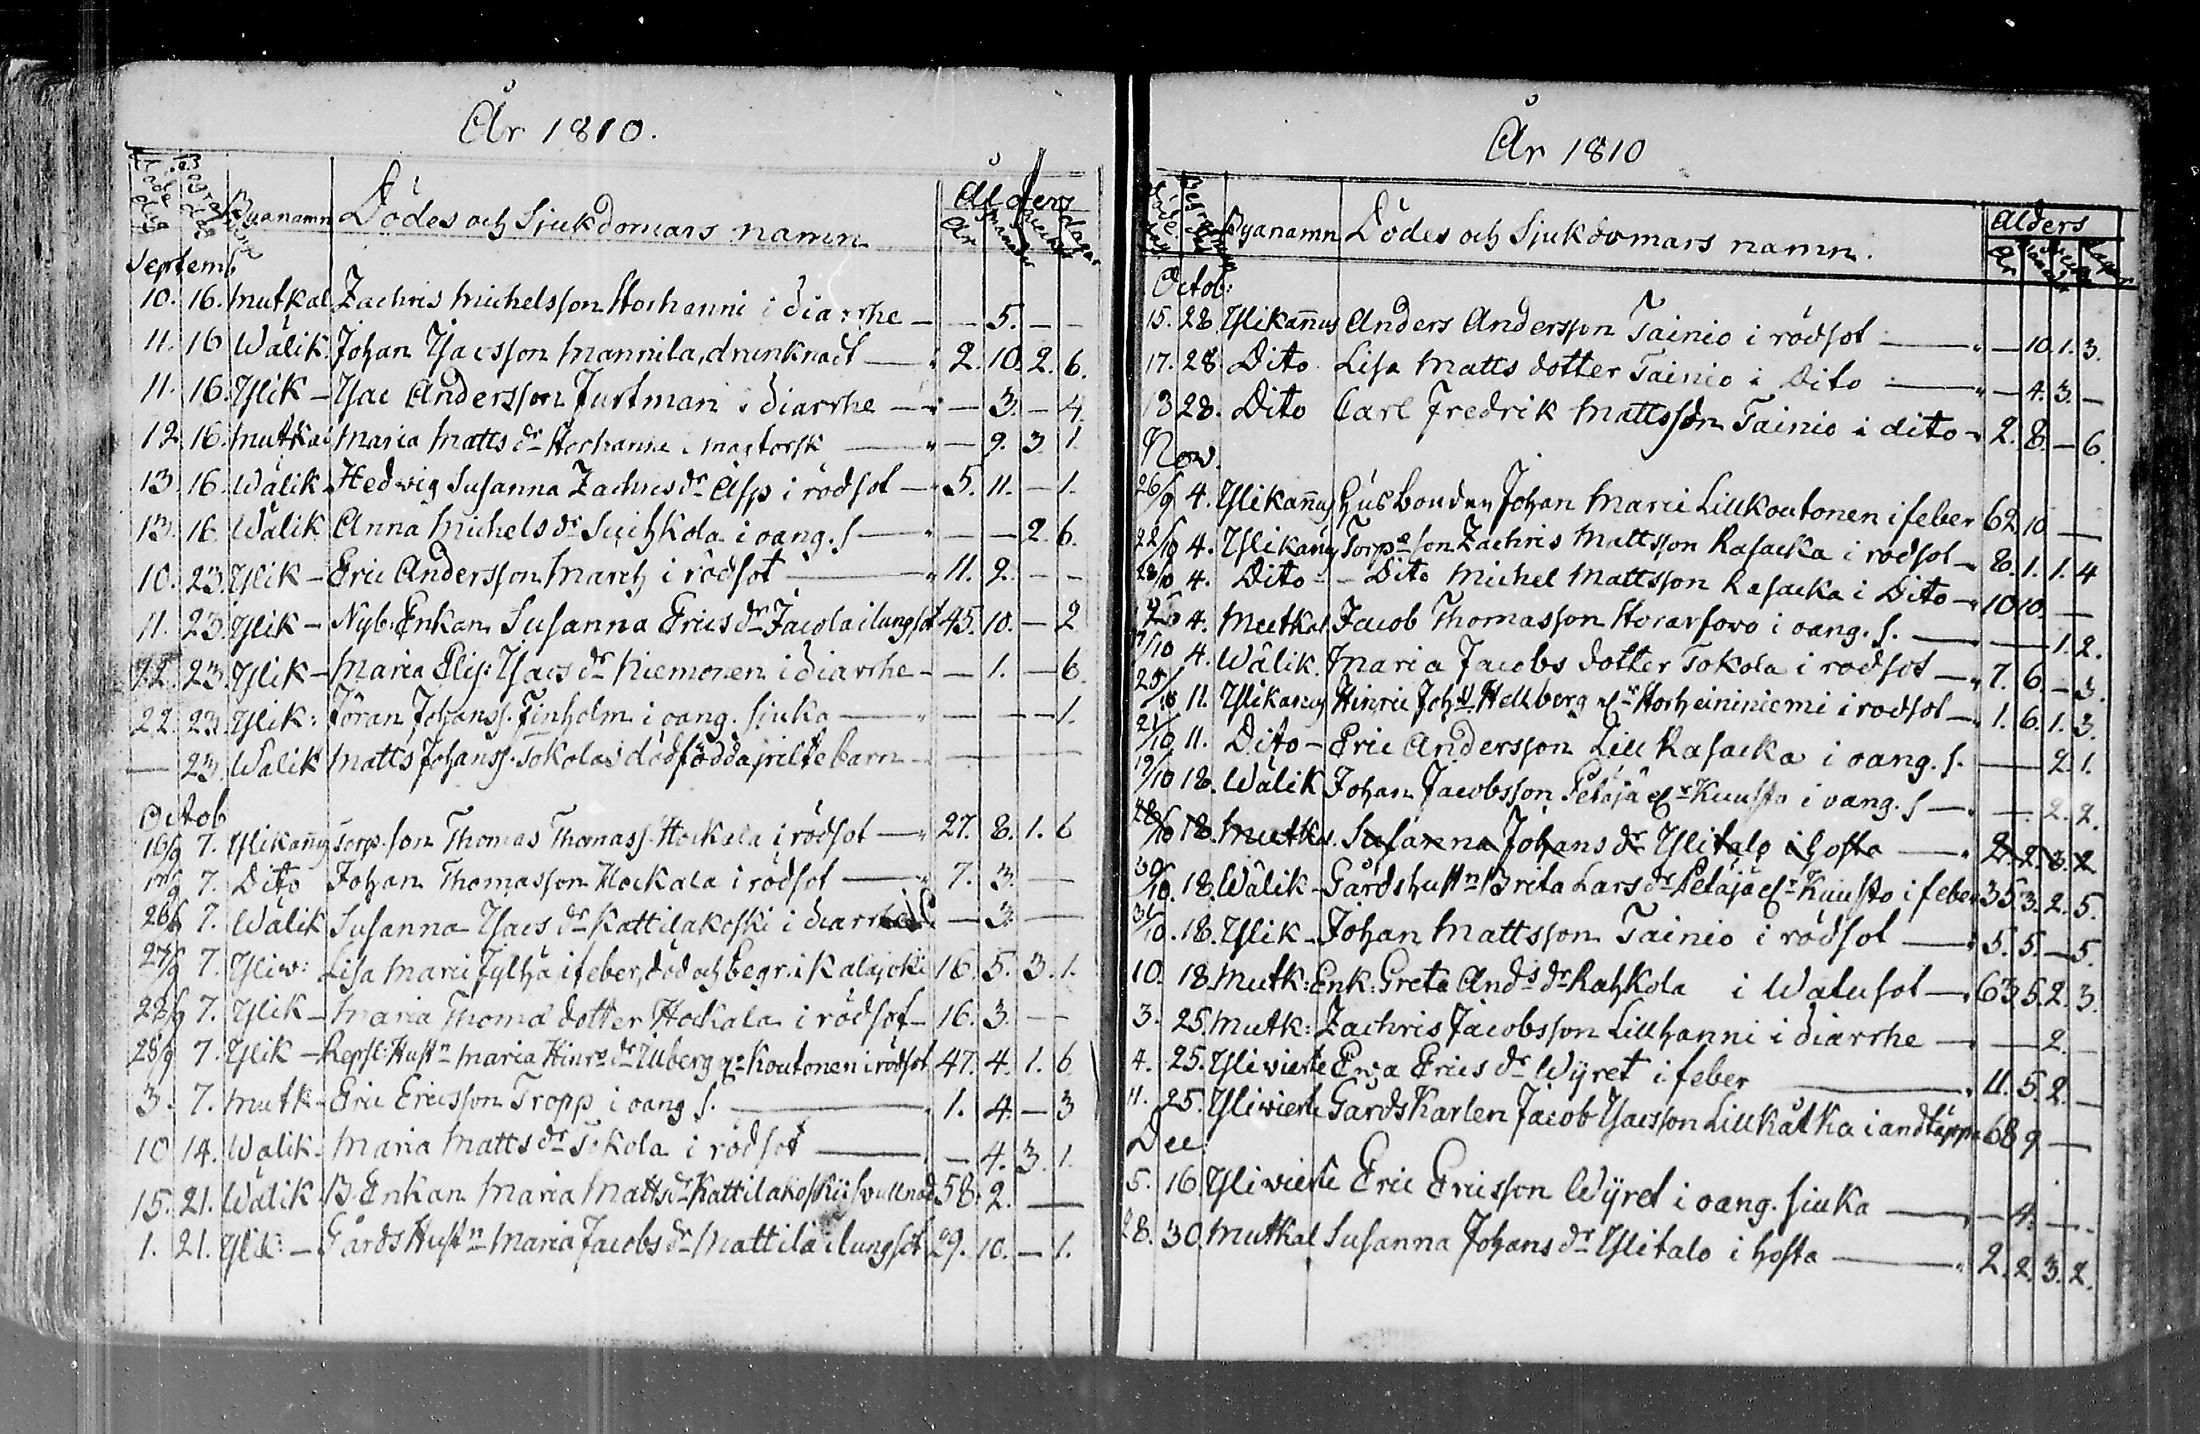 År 1810.
Byanamn Dödes och Sjukdomars namn Ålders
År
Septemb
10. 16. Mutkal Zachris Michelsson Storhanni i diarrhe — — 5. — —
11. 16 Wälik Johan Isacsson Mannila, drunknadt — 2. 10. 2. 6.
11. 16. Ylik — Isac Andersson Juttman i diarrhe — — 3. — 4.
12 16. Mutkal Maria Matts dr Storhanni i — — 9. 3 1.
13. 16. Wälik Hedwig Susanna Zachris dr Asp i rödsot — 5. 11. — 1.
13. 16 Wälik Anna Michels dr i oang. s — — — 2. 6.
10. 23. Ylik — Eric Andersson March i rödsot — 11. 2. — —
11. 23. Ylik — Nyb: Enkan Susanna Erics dr Jacola i lungsot 45. 10. — 2
12. 23. Ylik — Maria Elis: Isacs dr Niemonen i diarrhe — — 1. — 6.
22. 23. Ylik: Jöran Johanss. Finholm i oang. siuka — — — — 1.
— 23. Wälik Matts Johanss. Tokolas dödfödda piltebarn — — — —
Octob
16/9 7. Ylikanus Torp. son Thomas Thomass. Hockala i rödsot — 27. 8. 1. 6
7. Dito Johan Thomasson Hockala i rödsot — 7. 3. — —
26/9 7. Wälik Susanna Isacs dr Kattilakoski i diarrhe — 3. — —
27/9 7. Yliw: Lisa Marci Jylhä i feber, död och begr. i Kalajoki 16. 5. 3. 1.
28/9 7. Ylik — Maria Thomæ dotter Hockala i rödsot — 16. 3. — —
25/9 7. Ylik — Repsl: Hustn Maria Hinrs dr Ulberg Koutonen i rödsot 47. 4. 1. 6
3. 7. Mutk — Eric Ericsson Tropp i oang s. — 1. 4. — 3
10 14. Wälik Maria Matts dr Tokola i rödsot — — 4. 3. 1.
15. 21. Wälik B. Enkan Maria Matts dr Kattilakoski i swullnad 58. 2. — —
1. 21. Ylik: — Gårds Hustn Maria Jacobs dr Mattila i lungsot 29. 10. — 1.
År 1810
Byanamn Dödes och Sjukdomars namn. Ålders
År
Octob:
15. 28. Ylikannus Anders Andersson Tainio i rödsot — — 10. 1. 3.
17. 28. Dito Lisa Matts dotter Tainio i Dito — — 4. 3. —
13 28. Dito Carl Fredrik Mattsson Tainio i dito — 2. 8. — 6.
Nov.
26/9 4. Ylikannus Husbonden Johan Marci Lillkoutonen i feber 62 10 — —
22/10 4. Ylikanus Torps son Zachris Mattsson Rasacka i rodsot — 8. 1. 1. 4
23/10 4. Dito — Dito Michel Mattsson Rasacka i Dito — 10 10. — —
4. Mutkal Jacob Thomasson Storarfovo i oang. s. — — — 1. 2.
4. Wälik. Maria Jacobs dotter Tokola i rodsot — 7. 6. — 3.
25/10 11. Ylikanus Hinric Joh. Hellberg Storheiniemi i rodsot — 1. 6. 1. 3.
21/10 11. Dito — Eric Andersson Lill Rasacka i oang. s. — — 2. 1.
19/10 18. Wälik Johan Jacobsson Petäjä Kuusto i oang. s — — 2. 2.
28/10 18. Mutka. Susanna Johans dr Ylitalo i hosta — 2. 2. 3. 2
30/10. 18. Wälik — Gårdshustn Brita Lars dr Petäjä Kuusto i feber 35. 3. 2. 5.
31/10. 18. Ylik — Johan Mattsson Tainio i rödsot — 5. 5. — 5.
10. 18. Mutk: Enk: Greta Ands dr Rahkola i Watusot — 63. 5. 2. 3.
3. 25. Mutk: Zachris Jacobsson Lillhanni i diarrhe — — — 2. —
4. 25. Ylivierke Ewa Erics dr Wyret i feber — 11. 5. 2. —
11. 25. Ylivierk Gårds Karlen Jacob Isacsson Lillkåtka i andtäppa 68 9 — —
Dec.
5. 16 Ylivierke Eric Ericsson Wyret i oang. siuka — — 4. — —
28. 30. Mutkal Susanna Johans dr Ylitalo i hosta — 2. 2. 3. 2.